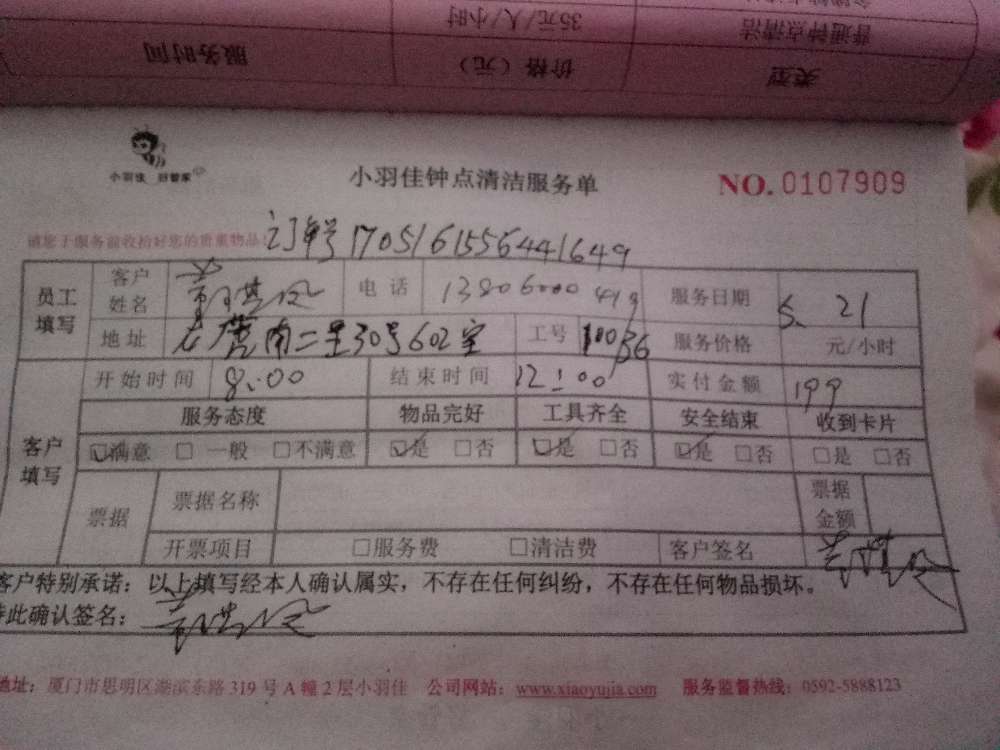 服务时间 价格（元） 类型
35元/人/小时 普通钟点清洁
小羽佳 好管家
小羽佳钟点清洁服务单
NO. 0107909
请您于服务前收拾好您的贵重物品!
订单号1705161556441649
员工填写 客户姓名 电话 服务日期 5. 21
地址 南二里30号602室 工号 10036 服务价格 元/小时
开始时间 8:00 结束时间 12:00 实付金额 199
客户填写 服务态度 物品完好 工具齐全 安全结束 收到卡片
☑满意 □一般 □不满意 ☑是 □否 ☑是 □否 ☑是 □否 □是 □否
票据 票据名称 票据金额
开票项目 □服务费 □清洁费 客户签名
客户特别承诺：以上填写经本人确认属实，不存在任何纠纷，不存在任何物品损坏。
特此确认签名：
地址：厦门市思明区湖滨东路 319 号 A 幢 2 层小羽佳 公司网站：www.xiaoyujia.com 服务监督热线：0592-5888123